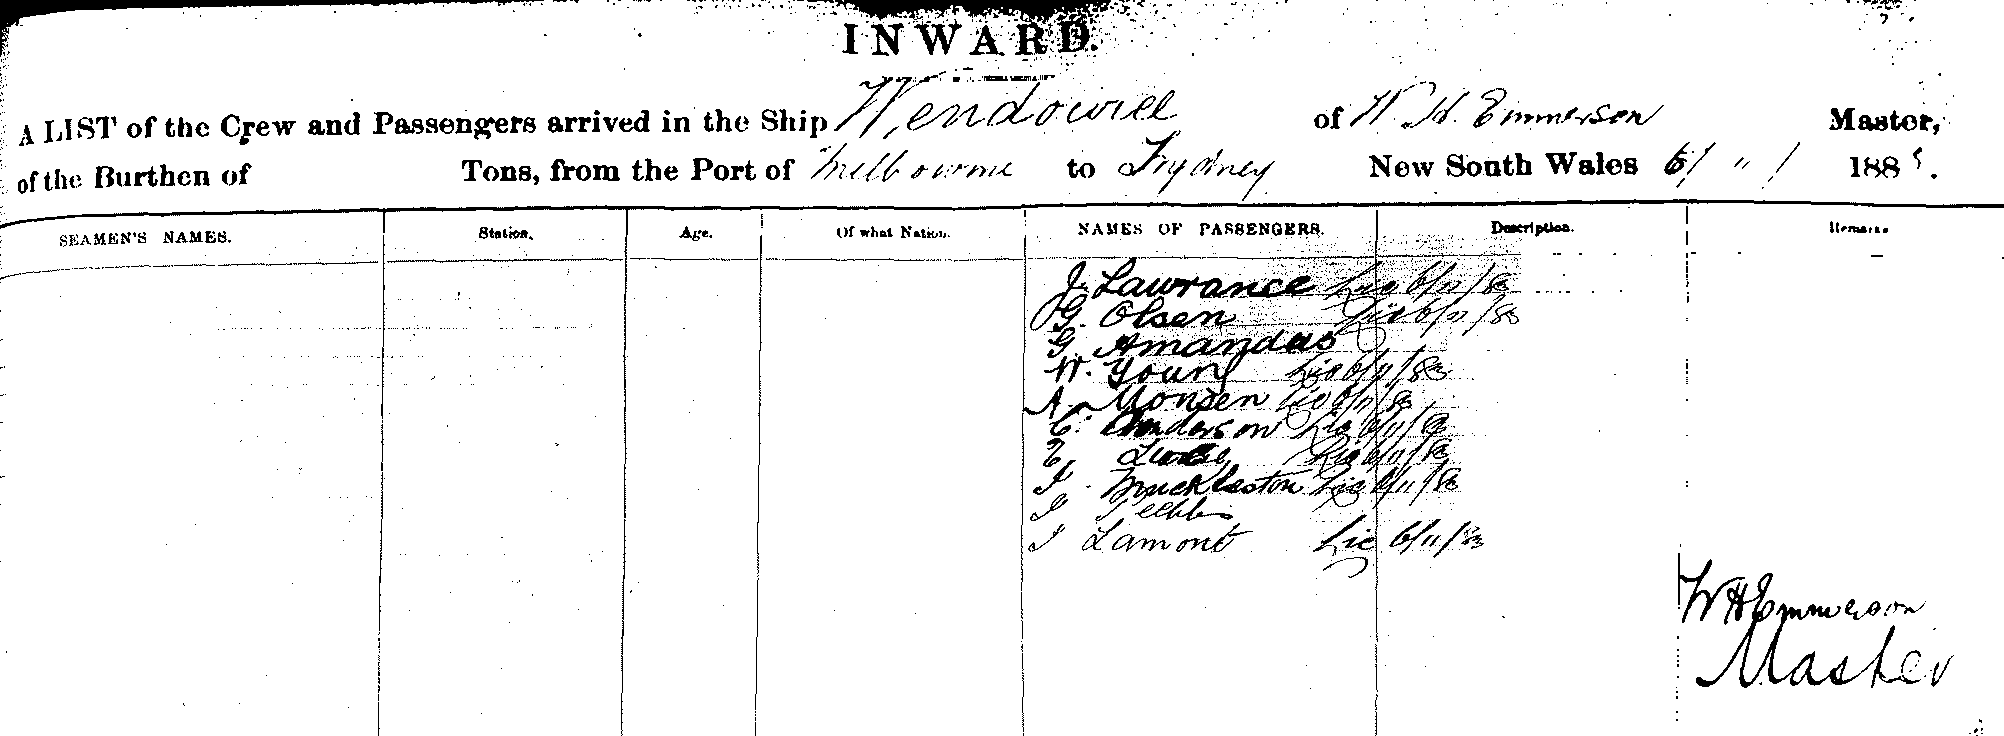 INWARD.
A LIST of the Crew and Passengers arrived in the Ship Wendouree of W. H. Emmerson Master,
of the Burthen of Tons, from the Port of Melbourne to Sydney New South Wales 188
SEAMEN'S NAMES. Station. Age. Of what Nation. NAMES OF PASSENGERS. Description. Remarks
J. Lawrance Lic 6/11/83
G. Olsen Lic 6/11/83
G. Amandus
W. Young Lic 6/11/83
A. Monsen Lic 6/11/83
C. Anderson Lic 6/11/83
Lic 6/11/83
J. Muckleston Lic 6/11/83
J
J Lamont Lic 6/11/83
W H Emmerson
Master